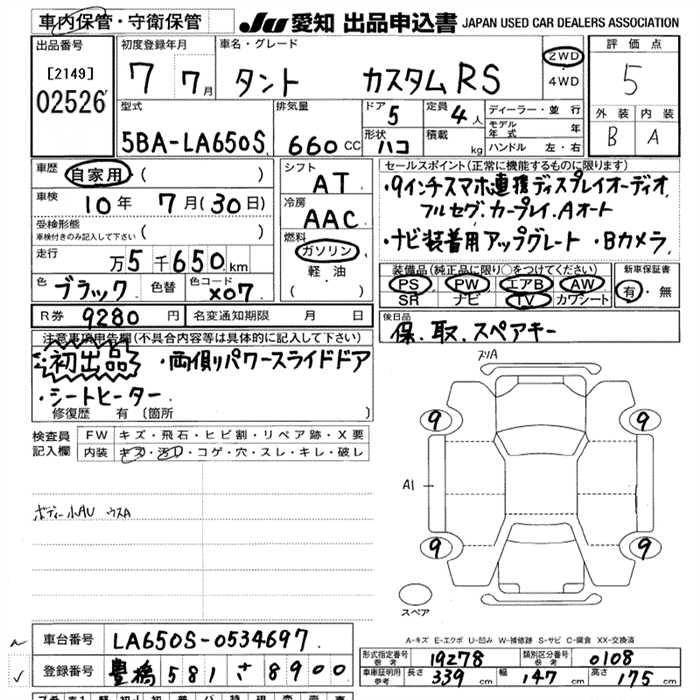 車内保管・守衛保管
JU 愛知 出品申込書 JAPAN USED CAR DEALERS ASSOCIATION
出品番号
[2149]
02526
初度登録年月
7 7月
車名・グレード
タント カスタムRS
2WD
4WD
評価点
5
外装 内装
B A
型式
5BA-LA650S
排気量
660 CC
ドア
5
定員
4人
形状
ハコ
積載
kg
ディーラー・並行
モデル年式 年
ハンドル 左・右
車歴
自家用 ( )
車検
10年 7月(30日)
受検形態
車検付きのみ記入して下さい ( )
走行
万5千650km
色
ブラック
色替
色コード
X07
シフト
AT
冷房
AAC
燃料
ガソリン
軽油
( )
R券 9280円
名変通知期限 月 日
セールスポイント(正常に機能するものに限ります)
・9インチスマホ連携ディスプレイオーディオ
フルセグ.カープレイ.Aオート
・ナビ装着用アップグレート・Bカメラ
装備品(純正品に限り○をつけてください)
PS PW エアB AW
SR ナビ TV カワシート
新車保証書
有・無
後日品
保.取.スペアキー
注意事項申告欄(不具合内容等は具体的に記入して下さい)
初出品 ・両側パワースライドドア
・シートヒーター
修復歴 有 〔箇所 〕
検査員記入欄
FW キズ・飛石・ヒビ割・リペア跡・X要
内装 キズ・汚レ・コゲ・穴・スレ・キレ・破レ
ボディー小AU ウスA
ズリA
9 9
A1
9 9
スペア
A-キズ E-エクボ U-凹み W-補修跡 S-サビ C-腐食 XX-交換済
車台番号 LA650S-0534697
登録番号 豊橋 581 さ 8900
形式指定番号 参考 19278
類別区分番号 参考 0108
車庫証明用 参考 長さ 339cm 幅 147cm 高さ 175cm